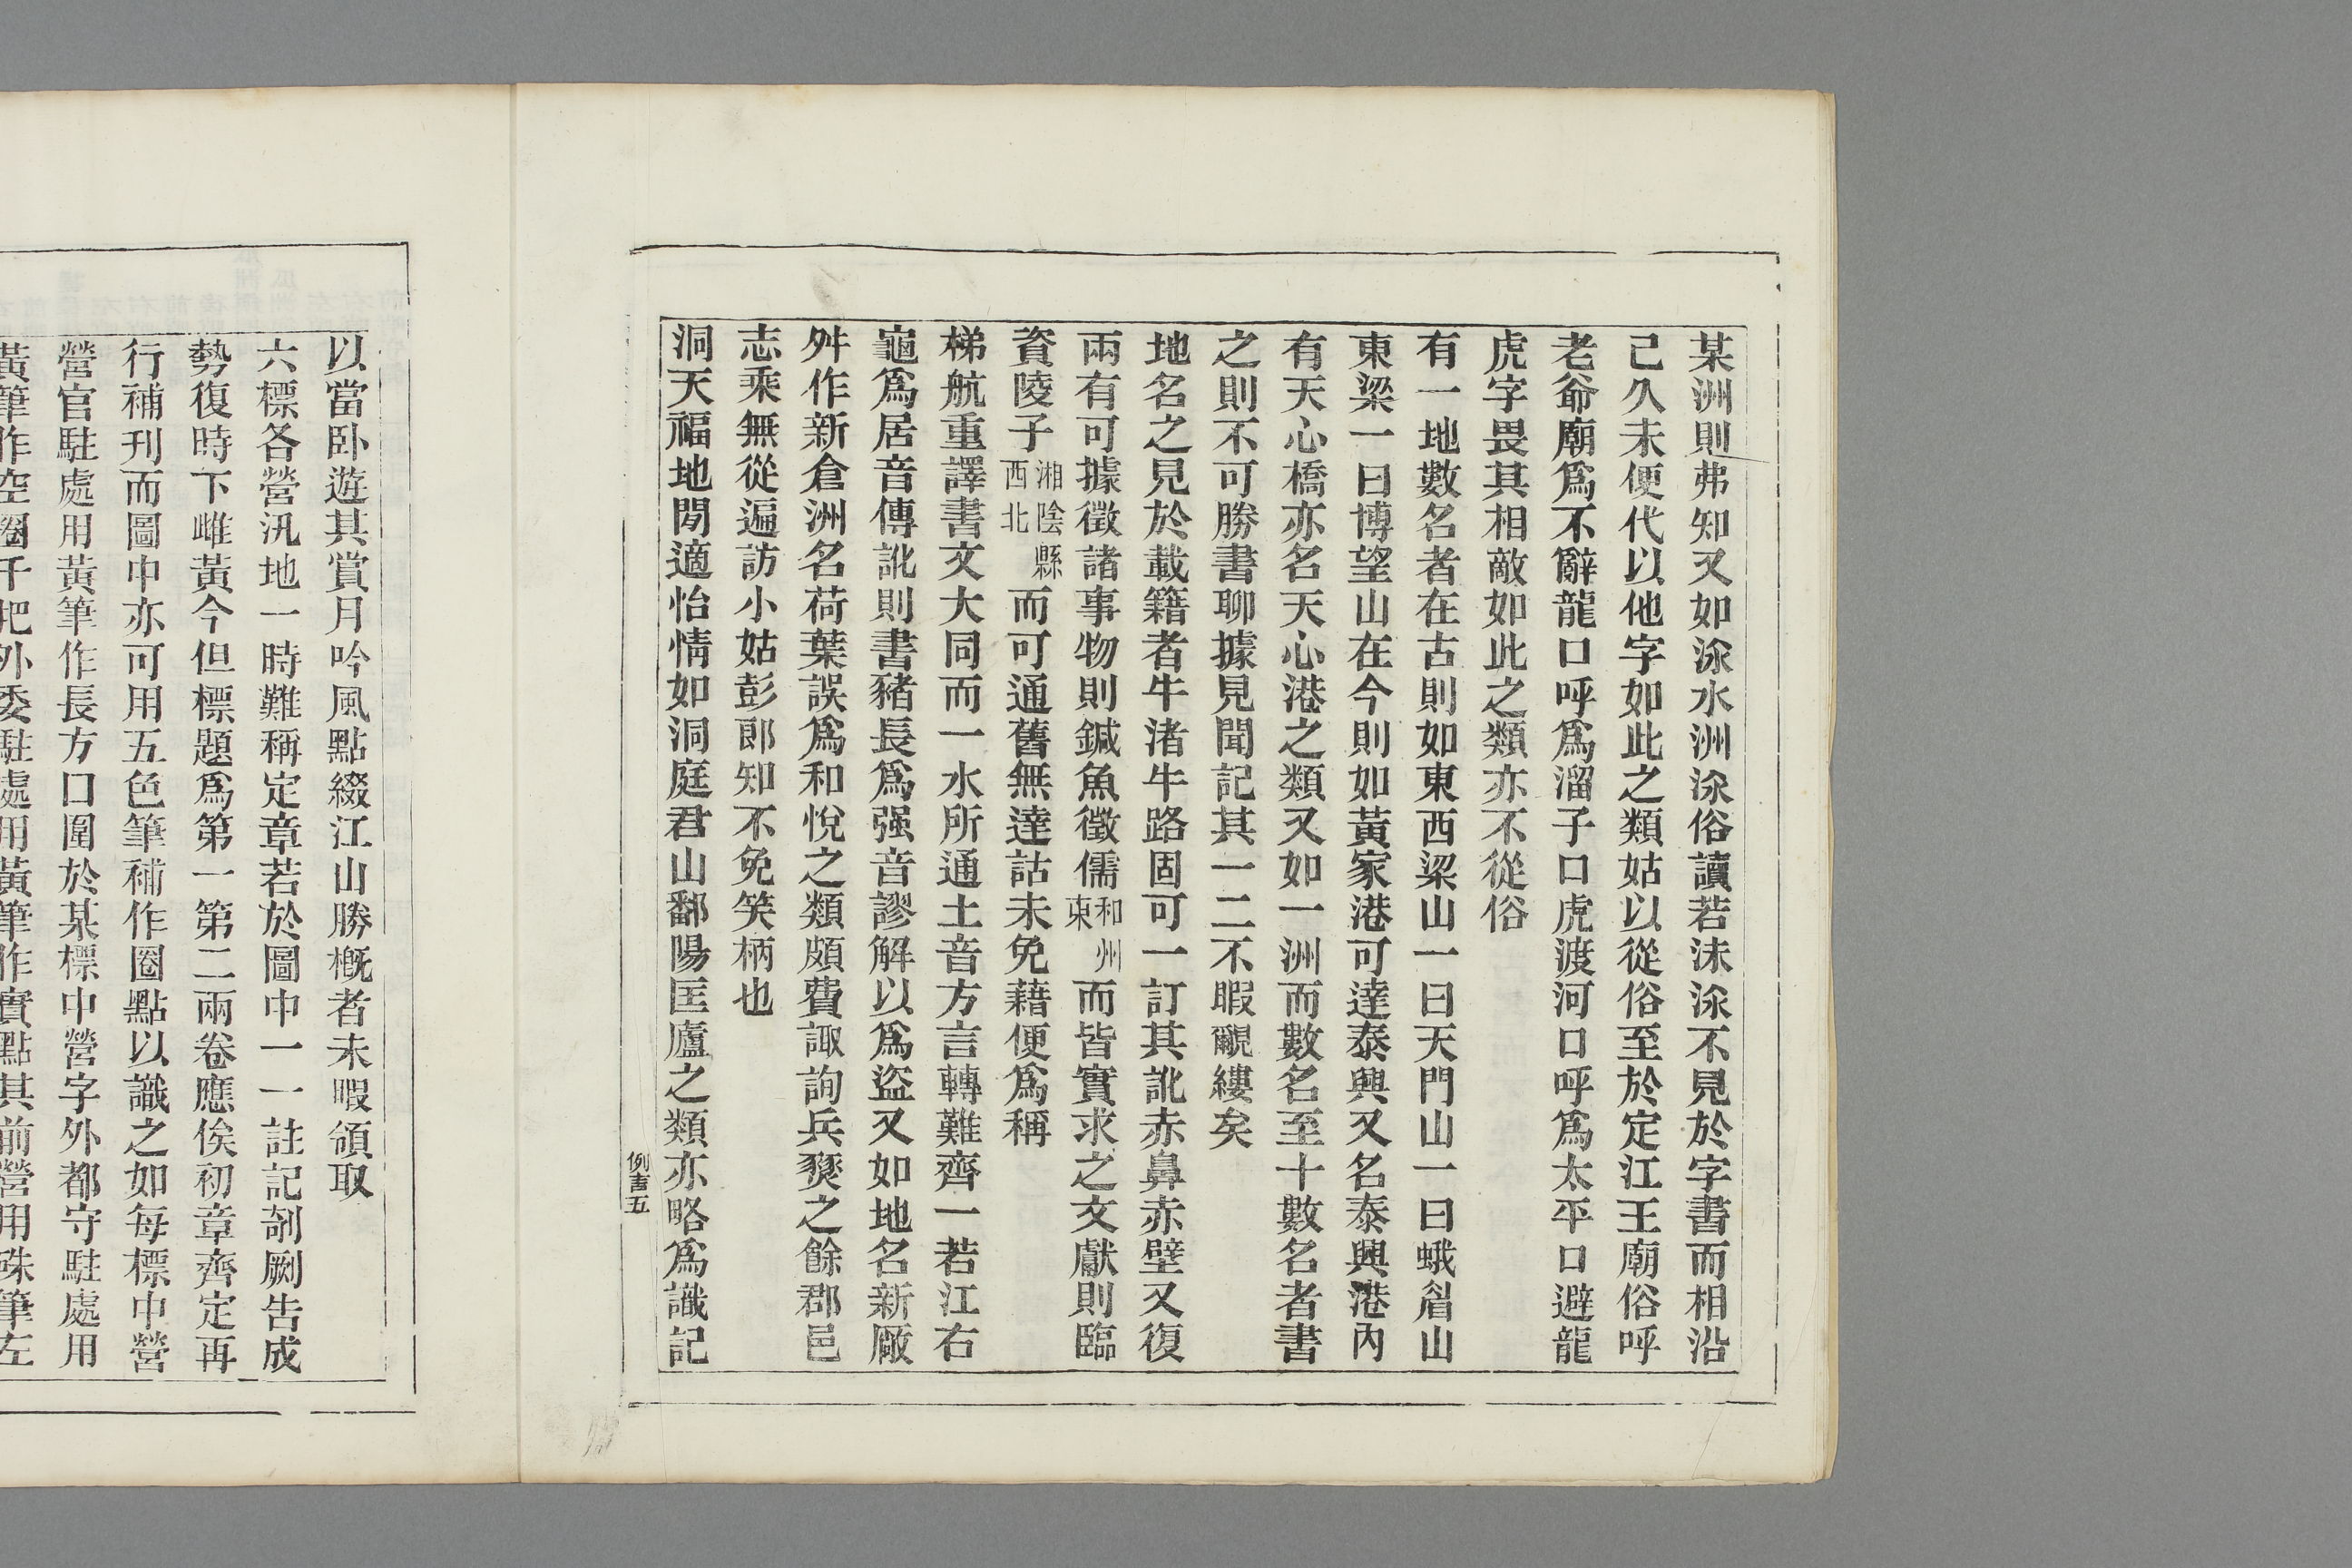 某洲則弗知又如湺水洲湺俗讀若沬湺不見於字書而相沿
已久未便代以他字如此之類姑以從俗至於定江王廟俗呼
老爺廟爲不辭龍口呼爲溜子口虎渡河口呼爲太平口避龍
虎字畏其相敵如此之類亦不從俗
有一地數名者在古則如東西梁山一曰天門山一曰蛾眉山
東梁一曰博望山在今則如黃家港可達泰興又名泰興港內
有天心橋亦名天心港之類又如一洲而數名至十數名者書
之則不可勝書聊據見聞記其一二不暇覼縷矣
地名之見於載籍者牛渚牛路固可一訂其訛赤鼻赤壁又復
兩有可據徵諸事物則鍼魚徵儒和州東而皆實求之文獻則臨
資陵子湘陰縣西北而可通舊無達詁未免藉便爲稱
梯航重譯書文大同而一水所通土音方言轉難齊一若江右
龜爲居音傳訛則書豬長爲强音謬解以爲盜又如地名新厰
舛作新倉洲名荷葉誤爲和悅之類頗費諏詢兵燹之餘郡邑
志乘無從遍訪小姑彭郎知不免笑柄也
洞天福地閒適怡情如洞庭君山鄱陽匡廬之類亦略爲識記
例言五
以當卧遊其賞月吟風點綴江山勝槪者未暇領取
六標各營汛地一時難稱定章若於圖中一一註記剞劂告成
勢復時下雌黃今但標題爲第一第二兩卷應俟初章齊定再
行補刊而圖中亦可用五色筆補作圈點以識之如每標中營
營官駐處用黃筆作長方囗圍於某標中營字外都守駐處用
黃筆作空圈千把外委駐處用黃筆作實點其前營用硃筆左